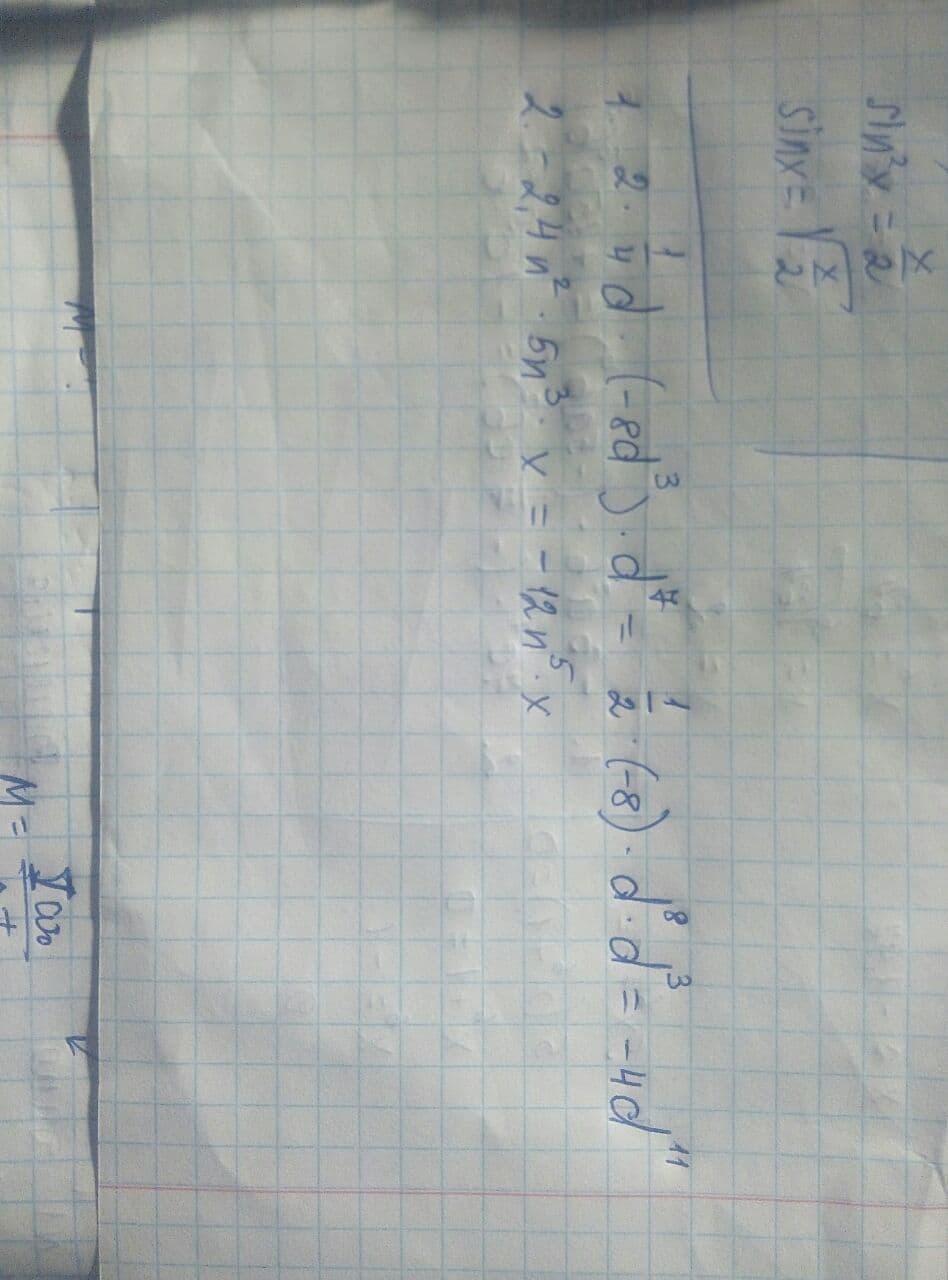 sin²x = x/2
sinx = √(x/2)
1. 2 · 1/4 d · (-8d³) · d⁷ = 1/2 · (-8) · d⁸ · d³ = -4d¹¹
2. -2,4n² · 5n³ · x = -12n⁵ · x
M =